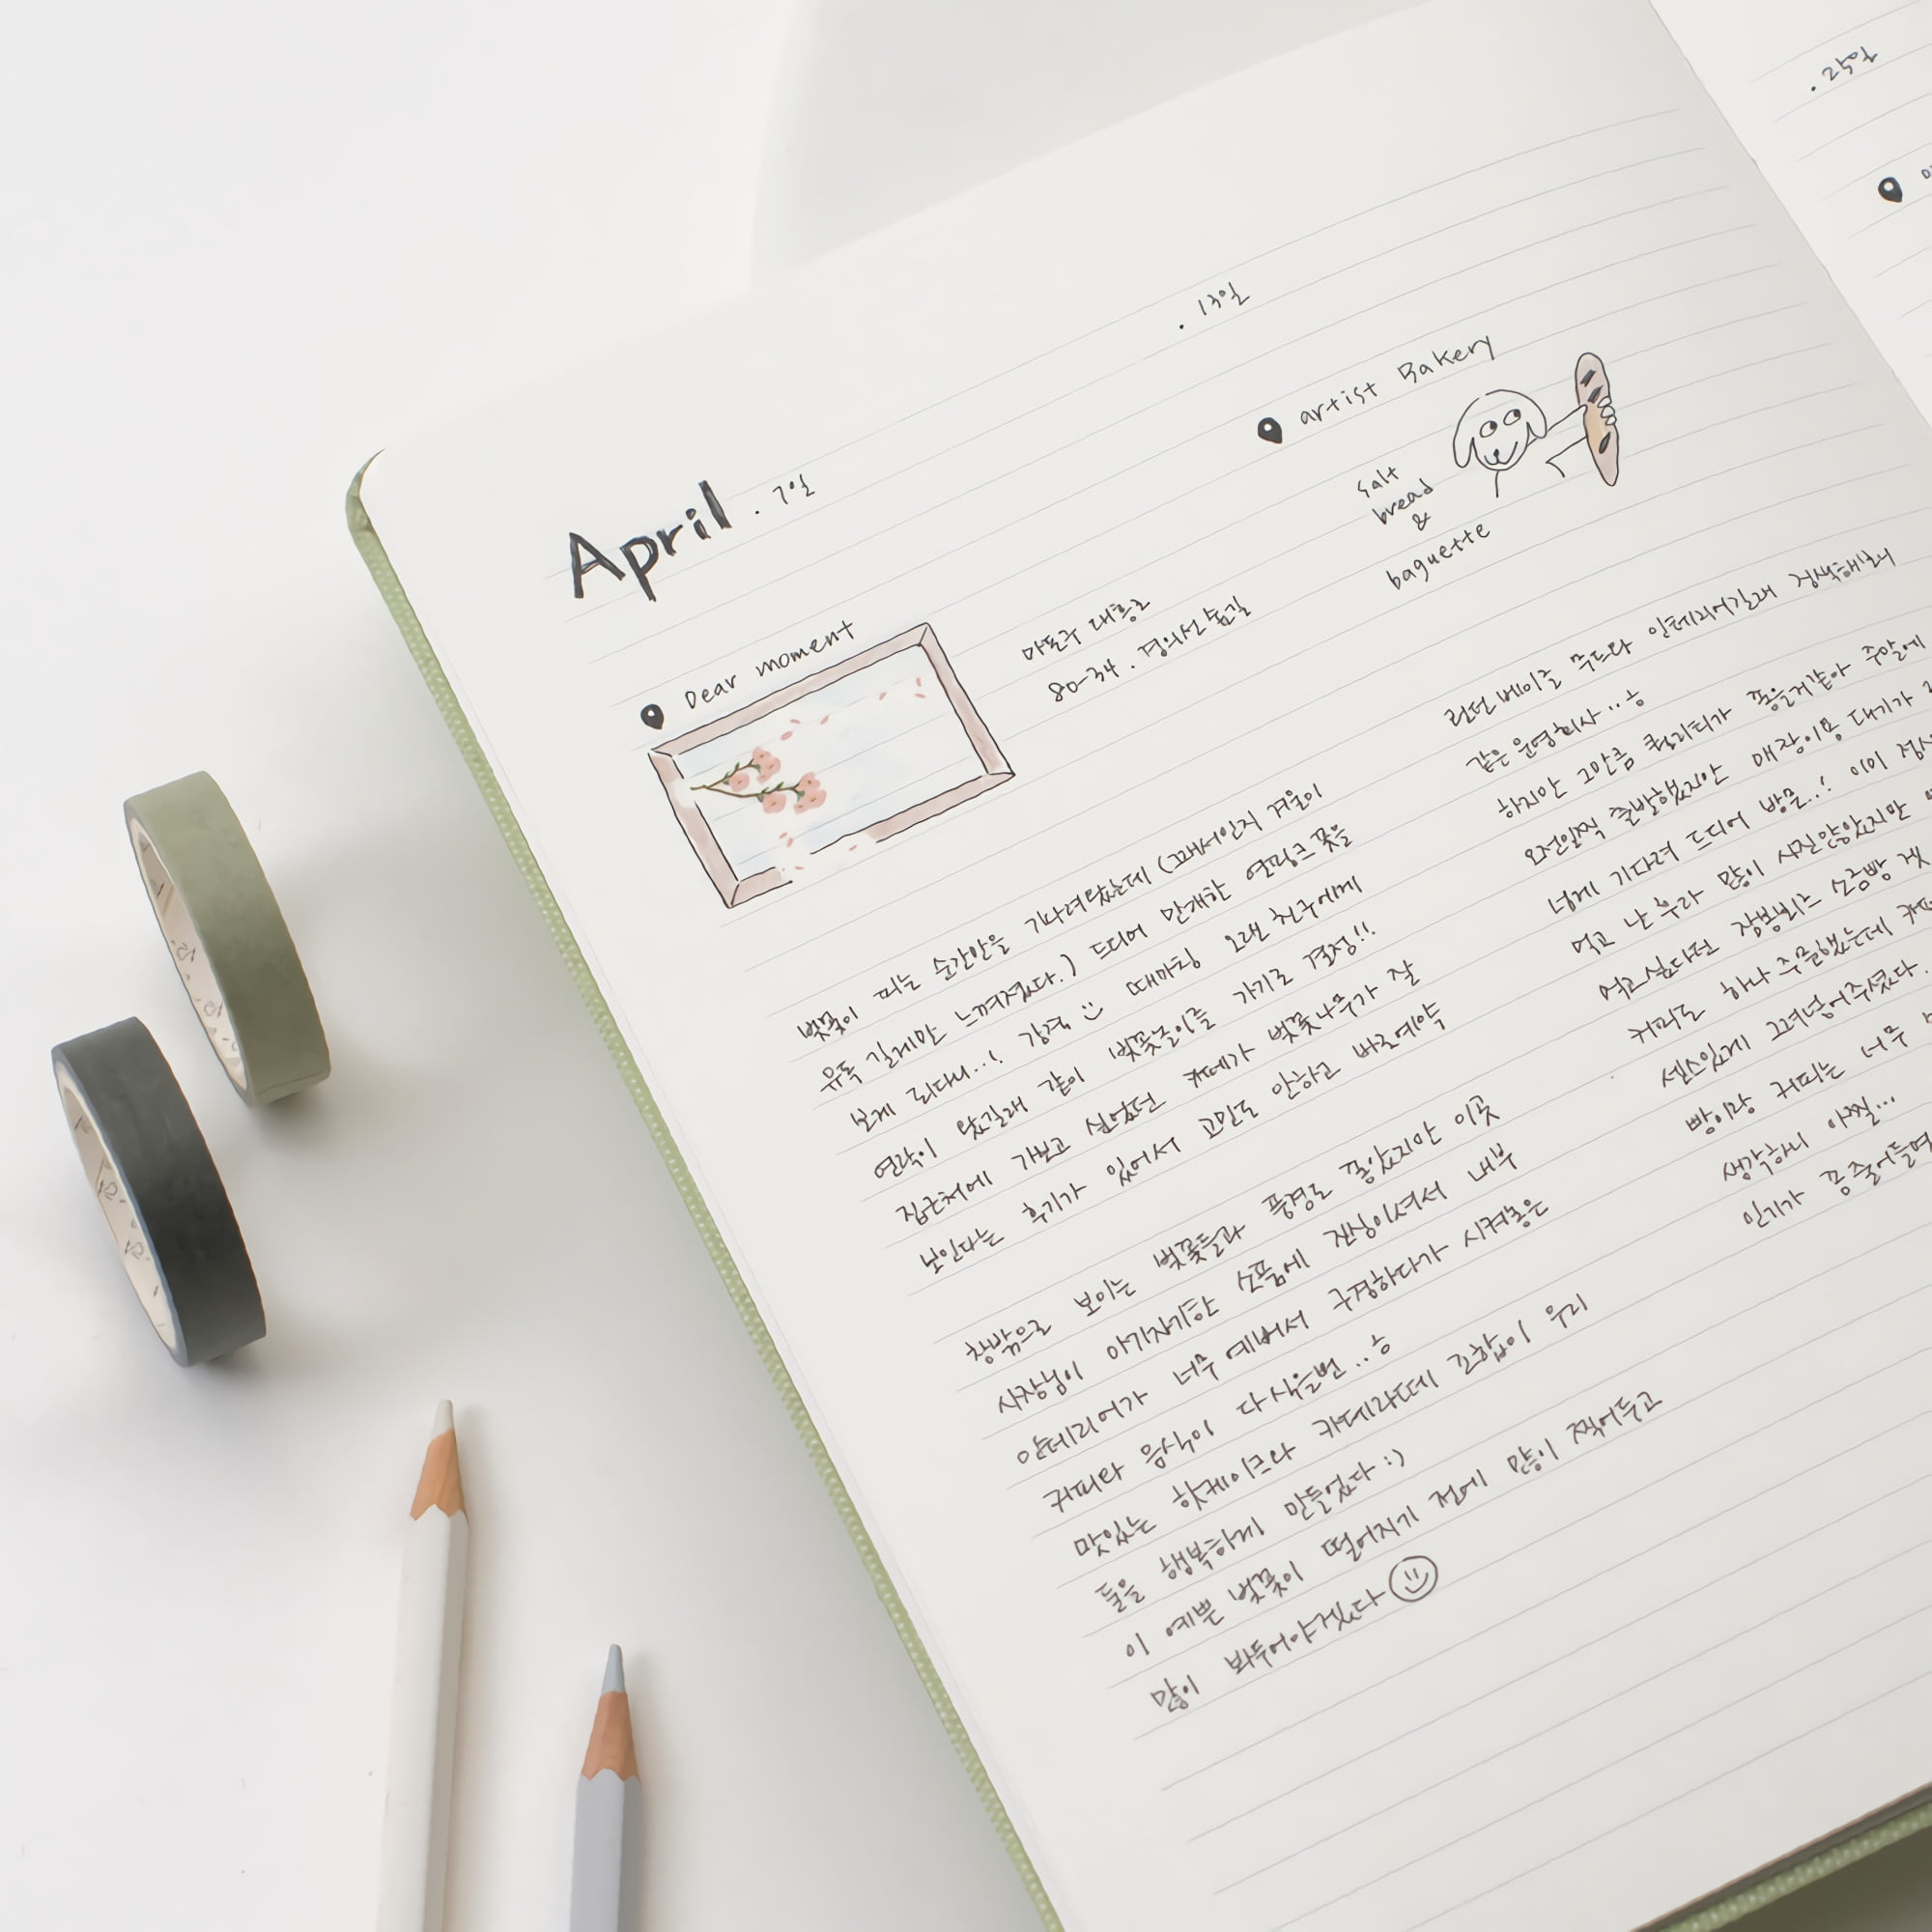 April . 7일
Dear moment
마포구 대흥로
80-34 . 경의선숲길
벚꽃이 피는 순간만을 기다려왔는데 (그래서인지 겨울이
유독 길게만 느껴졌다.) 드디어 만개한 연핑크 꽃을
보게 되다니...! 감격 때마침 오랜 친구에게
연락이 왔길래 같이 벚꽃놀이를 가기로 결정!!
집근처에 가보고 싶었던 카페가 벚꽃나무가 잘
보인다는 후기가 있어서 고민도 안하고 바로예약
창밖으로 보이는 벚꽃들과 풍경도 좋았지만 이곳
사장님이 아기자기한 소품에 진심이셔서 내부
인테리어가 너무 예뻐서 구경하다가 시켜놓은
커피랑 음식이 다식을뻔..ㅎ
맛있는 핫케이크랑 카페라떼 조합이 우리
둘을 행복하게 만들었다 :)
이 예쁜 벚꽃이 떨어지기 전에 많이 찍어두고
많이 봐두어야겠다
. 13일
artist Bakery
salt
bread
&
baguette
런던베이글 무드와 인테리어길래 검색해보니
같은 운영회사..ㅎ
하지만 그만큼 퀄리티가 좋을거같아 주말에
오전일찍 출발했지만 매장이용 대기가
넘게 기다려 드디어 방문..! 이미
먹고 난 후라 많이 시킨않았지만
먹고싶었던 잠봉뵈르 소금빵
커피도 하나 주문했는데
센스있게 끄려넣어주셨다.
빵이랑 커피는 너무
생각하니 아찔...
인기가 좀 줄어들면
. 25일